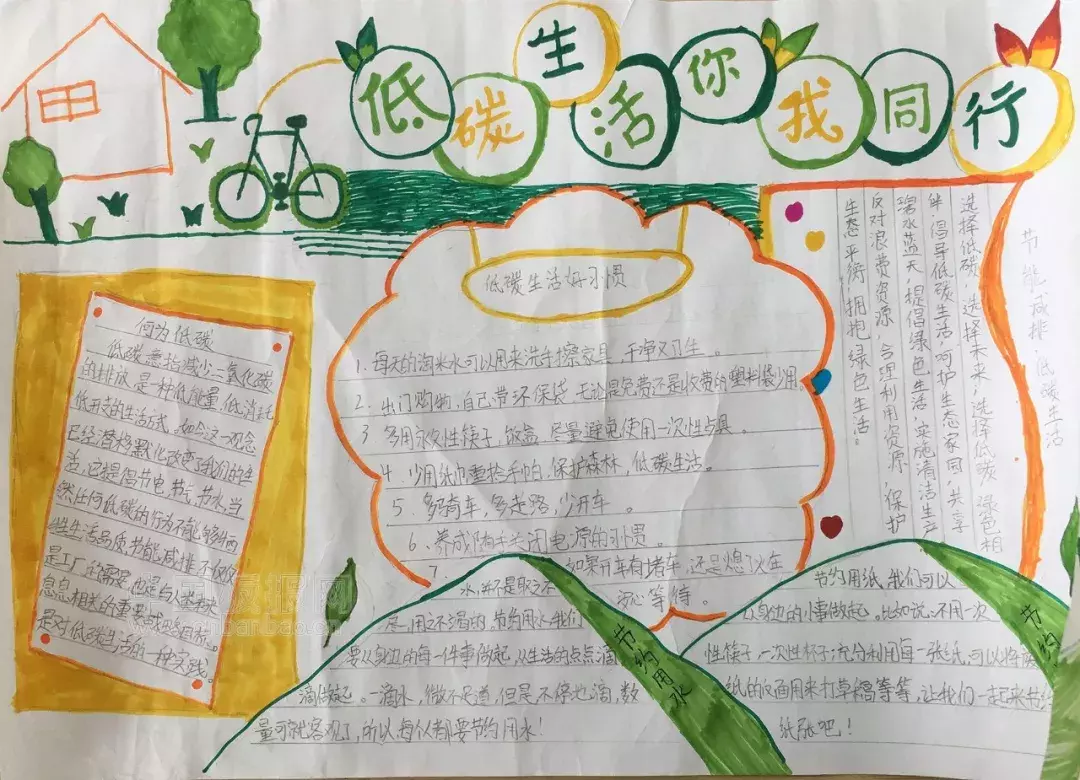 低碳生活你我同行
何为低碳
低碳意指减少二氧化碳
的排放,是一种低能量,低消耗
低开支的生活方式。如今这一观念
已经潜移默化改变了我们的生
活,已提倡节电,节气,节水,当
然任何低碳的行为不能够
生活品质,节能减排不仅仅
是工厂的需要,也是与人类未来
息息相关的重要战略目标。
是对低碳生活的一种实践。
低碳生活好习惯
1.每天的淘米水可以用来洗手擦家具,干净又卫生。
2.出门购物,自己带环保袋,无论是免费还是收费的塑料袋少用。
3.多用永久性筷子,饭盒,尽量避免使用一次性
4.少用纸巾重拾手帕,保护森林,低碳生活。
5.多骑车,多走路,少开车。
6.养成随手关闭电源的习惯。
7.如果开车有堵车,还是熄了火在
安心等待。
选择低碳,选择未来,选择低碳 绿色相
伴 倡导低碳生活,呵护生态家园,共享
碧水蓝天,提倡绿色生活,实施清洁生产
反对浪费资源,合理利用资源,保护
生态平衡,拥抱绿色生活。
节能减排,低碳生活
水,并不是取之不
尽,用之不竭的。节约用水我们
要从身边的每一件事做起,从生活的点点滴
滴做起。一滴水,微不足道,但是不停地滴,数
量可就客观了,所以每个人都要节约用水!
节约用水
节约用纸,我们可以
从身边的小事做起。比如说:不用一次
性筷子,一次性杯子,充分利用每一张纸,可以将
纸的反面用来打草稿等等,让我们一起来节约
纸张吧!
节约